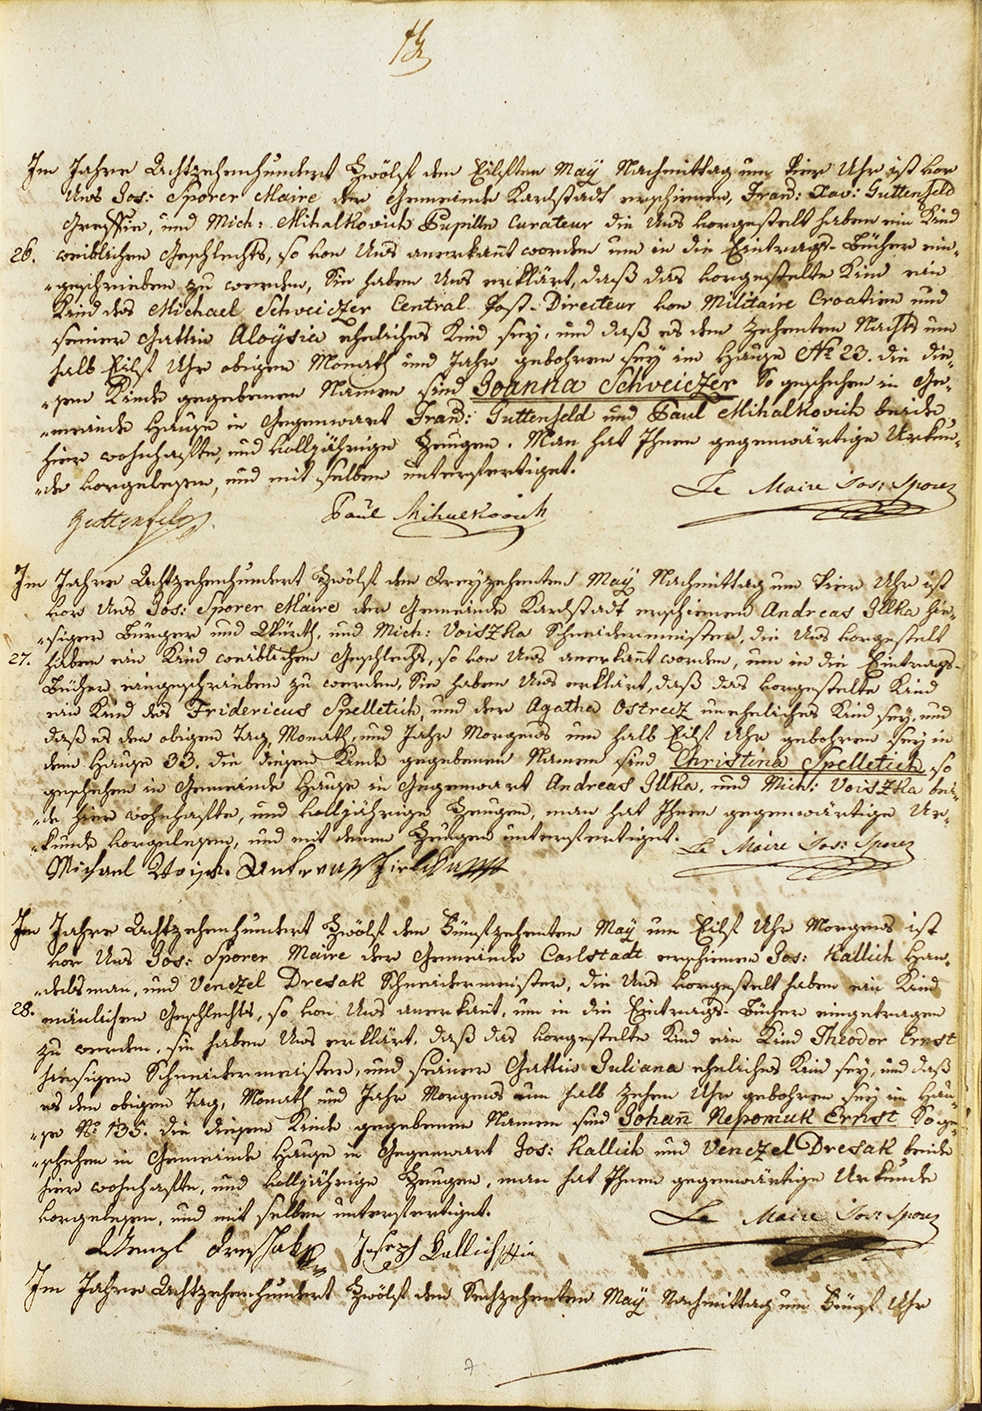 Im Jahre Achtzehenhundert Zwölf den Eilften May Nachmittag um Vier Uhr ist vor
Uns Jos: Sporer Maire der Gemeinde Karlstadt erschienen, Fran: Xav: Guttenfeld
Greffie, und Mich: Mihalkovich Pupille Curateur die Uns vorgestelt haben ein Kind
26. weiblichen Geschlechts, so von Uns anerkant worden um in die Eintrags-Bücher ein-
-geschrieben zu werden, Sie haben Uns erklärt, daß das vorgestelte Kind ein
Kind des Michael Schweiczer Central Post-Directeur von Militaire Croatien und
seiner Gattin Aloÿsia eheliches Kind sey, und daß es den Zehenten Nachts um
halb Eilf Uhr obigen Monath und Jahr gebohren sey im Hause No 23. die die-
-sem Kinde gegebenen Namen sind Joanna Schweiczer So geschehen in Ge-
-meinde Hause in Gegenwart Fran: Guttenfeld und Paul Mihalkovich beide
hier wohnhafte, und volljährige Zeugen. Man hat Ihnen gegenwärtige Urkun-
-de vorgelesen, und mit selben unterfertiget.
Le Maire Jos: Sporer
Guttenfeld
Paul Mihalkovich
Im Jahre Achtzehenhundert Zwölf den Dreyzehenten May Nachmittag um Vier Uhr ist
vor Uns Jos: Sporer Maire der Gemeinde Karlstadt erschienen Andreas Illka hie-
-siger Bürger und Würth, und Mich: Voiszka Schneidermeister, die Uns vorgestelt
27. haben ein Kind weiblichen Geschlechts, so von Uns anerkant worden, um in die Eintrags-
Bücher eingeschrieben zu werden, Sie haben Uns erklärt, daß das vorgestelte Kind
ein Kind des Fridericus Spelletich, und der Agatha Ostreiz uneheliches Kind sey, und
daß es den obigen Tag, Monath, und Jahr Morgens um halb Eilf Uhr gebohren sey in
dem Hause 33. die diesem Kinde gegebenen Namen sind Christina Spelletich so
geschehen in Gemeinde Hause in Gegenwart Andreas Illka, und Mich: Voiszka bei-
-de hier wohnhafte, und volljährige Zeugen, man hat Ihnen gegenwärtige Ur-
-kunde vorgelesen, und mit denen Zeugen unterfertiget.
Le Maire Jos: Sporer
Michael
Im Jahre Achtzehenhundert Zwölf den Fünfzehenten May um Eilf Uhr Morgens ist
vor Uns Jos: Sporer Maire der Gemeinde Carlstadt erschienen Jos: Kallich Han-
-delsman, und Venczel Dresak Schneidermeister, die Uns vorgestelt haben ein Kind
28. mänlichen Geschlechts, so von Uns anerkant, um in die Eintrags-Bücher eingetragen
zu werden. sie haben Uns erklärt, daß das vorgestelte Kind ein Kind Theodor Ernst
hiesigen Schneidermeister, und seiner Gattin Juliana eheliches Kind sey, und daß
es den obigen Tag, Monath und Jahr Morgens um halb Zehen Uhr gebohren sey im Hau-
-se No 135. die diesem Kinde gegebenen Namen sind Johan Nepomuk Ernst So ge-
-schehen in Gemeinde Hause in Gegenwart Jos: Kallich und Venczel Dresak beide
hier wohnhafte, und volljährige Zeugen, man hat Ihnen gegenwärtige Urkunde
vorgelesen, und mit selben unterfertiget.
Le Maire Jos: Sporer
Joseph Kallich
Im Jahre Achtzehenhundert Zwölf den Sechzehenten May Nachmittag um Fünf Uhr